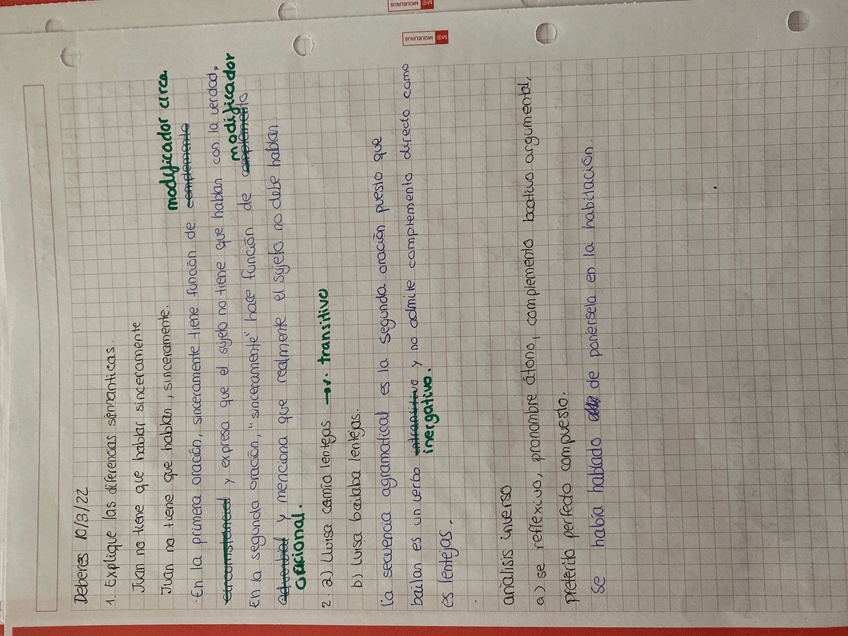 Deberes 10/3/22
1. Explique las diferencias semanticas.
Juan no tiene que hablar sinceramente
Juan no tiene que hablar, sinceramente.
modificador circa.
En la primera oración, sinceramente tiene función de complemento
circunstancial y expresa que el sujeto no tiene que hablan con la verdad,
modificador
En la segunda oración, "sinceramente" hace función de complemento
adverbial y menciona que realmente el sujeto no debe hablan
oracional.
2. a) Luisa comía lentejas → v. transitivo
b) Luisa bailaba lentejas.
La secuencia agramatical es la segunda oración puesto que
bailan es un verbo intransitivo y no admite complemento directo como
inergativo.
es lentejas.
análisis inverso
a) se reflexivo, pronombre átono, complemento locativo argumental,
preterito perfecto compuesto.
Se había hablado de ponérsela en la habitación
MIQUELRIUS
MIQUELRIUS